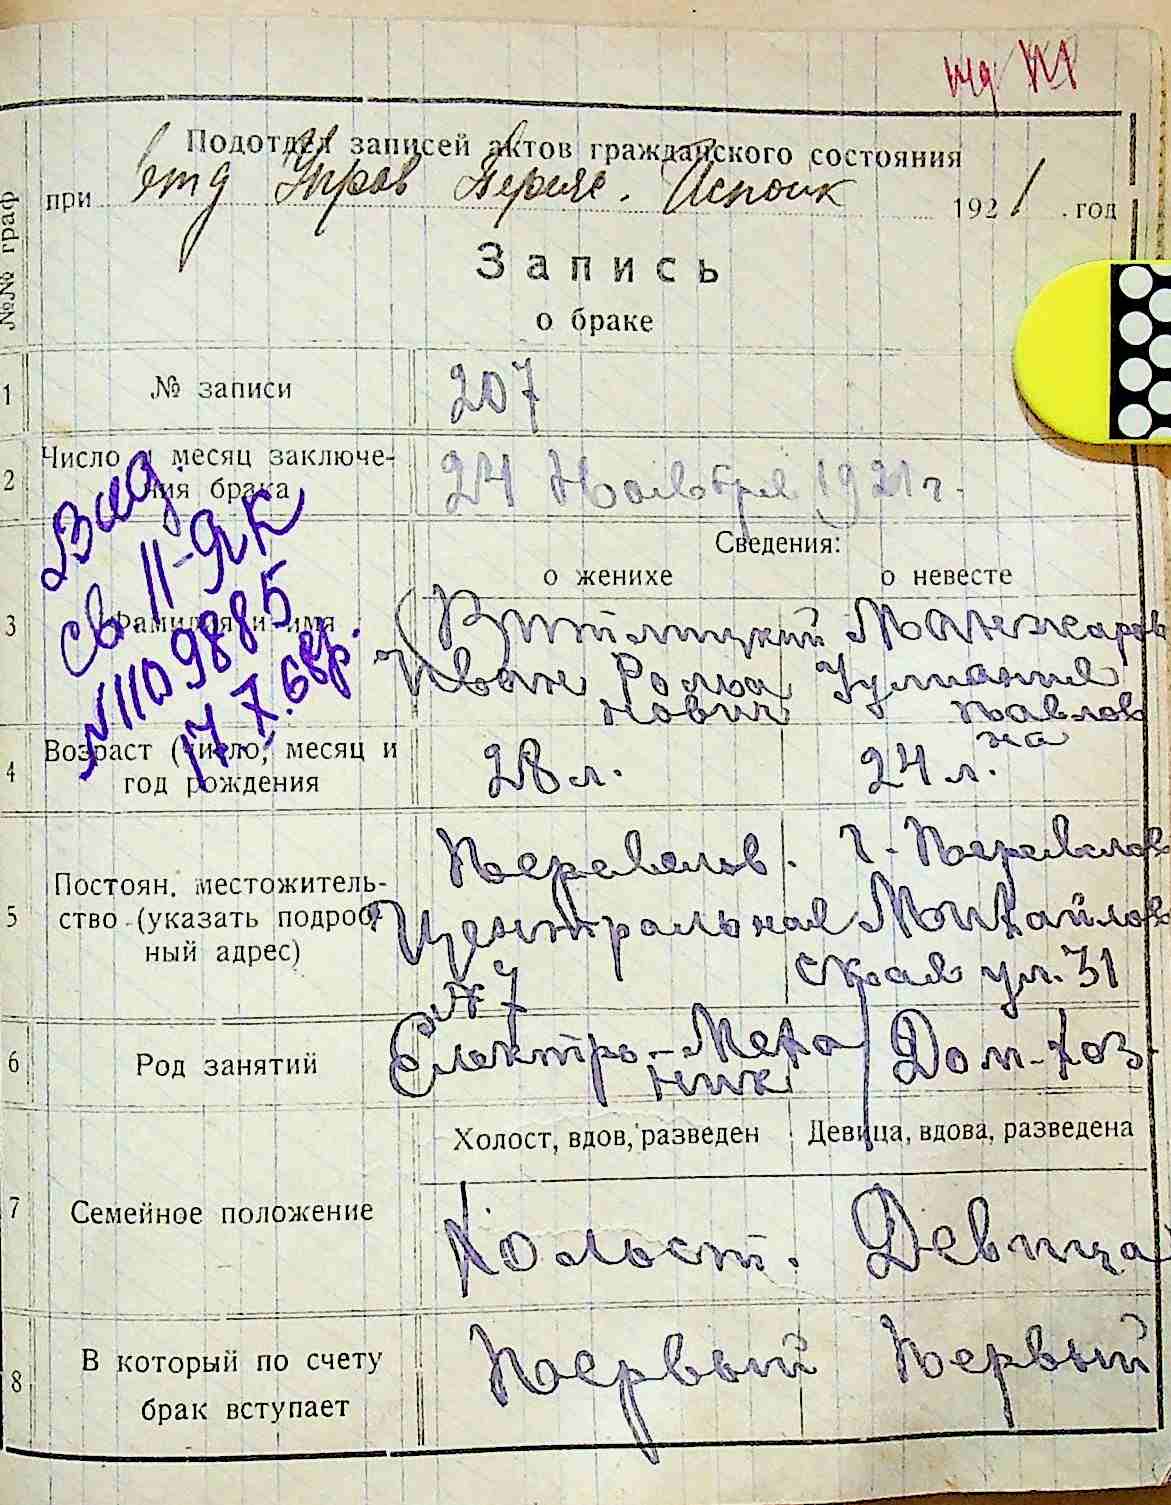 Подотдел записей актов гражданского состояния
при отд Управ Переяс. Исполк 1921 . год
Запись
о браке
№№ граф
1 № записи 207
2 Число и месяц заключе-
ния брака 24 Ноября 1921 г.
Сведения:
о женихе о невесте
3 Фамилия и имя
Манжаров
Иван Рома Улиания
нович Павлов
на
Выд.
св. II-ЯК
№1109885
17 X.
4 Возраст (число, месяц и
год рождения
28 л. 24 л.
5 Постоян. местожитель-
ство (указать подроб-
ный адрес)
г. Переяслов
Центральная Михайлов
№ 7 ская ул. 31
6 Род занятий
Електро-Меха Дом-хоз.
ник
Холост, вдов, разведен Девица, вдова, разведена
7 Семейное положение Холост. Девица
8 В который по счету
брак вступает
Первый Первый